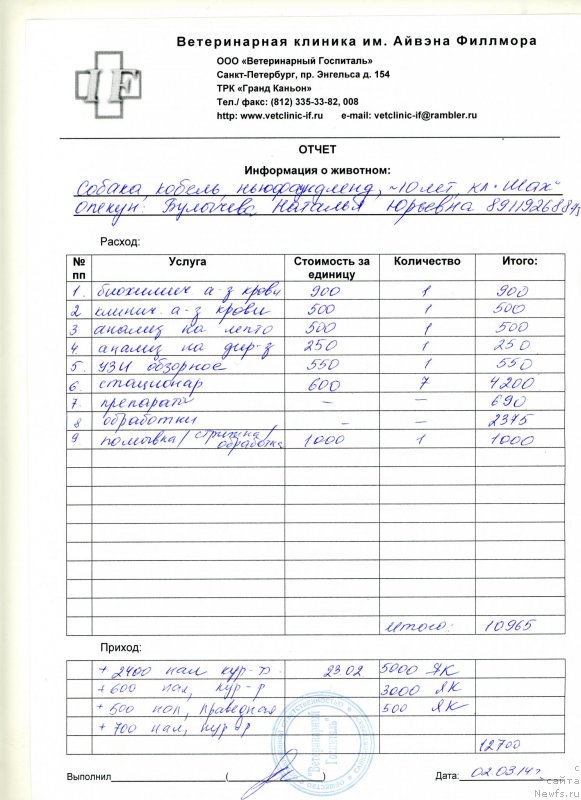 Ветеринарная клиника им. Айвэна Филлмора
IF
ООО «Ветеринарный Госпиталь»
Санкт-Петербург, пр. Энгельса д. 154
ТРК «Гранд Каньон»
Тел./ факс: (812) 335-33-82, 008
http: www.vetclinic-if.ru e-mail: vetclinic-if@rambler.ru
ОТЧЕТ
Информация о животном:
Собака, кобель, ньюфаундленд, ~10 лет, кл. "Шах"
Опекун: Булычева Наталья Юрьевна 8911926
Расход:
№ пп Услуга Стоимость за единицу Количество Итого:
1. биохимич. а-з крови 900 1 900
2 клинич. а-з крови 500 1 500
3 анализ на лепто 500 1 500
4. анализ на дир-з 250 1 250
5. УЗИ обзорное 550 1 550
6. стационар 600 7 4200
7. препараты — — 690
8 обработки — — 2375
9 помывка/стрижка/обработка 1000 1 1000
Итого: 10965
Приход:
+ 2400 нал кур-р. 23.02 5000 ЯК
+ 600 нал, кур-р 3000 ЯК
+ 500 нал, праведная 500 ЯК
+ 700 нал, кур-р
12700
Выполнил ( ) Дата: 02.03.14г
"Ветеринарный Госпиталь"
с сайта
Newfs.ru